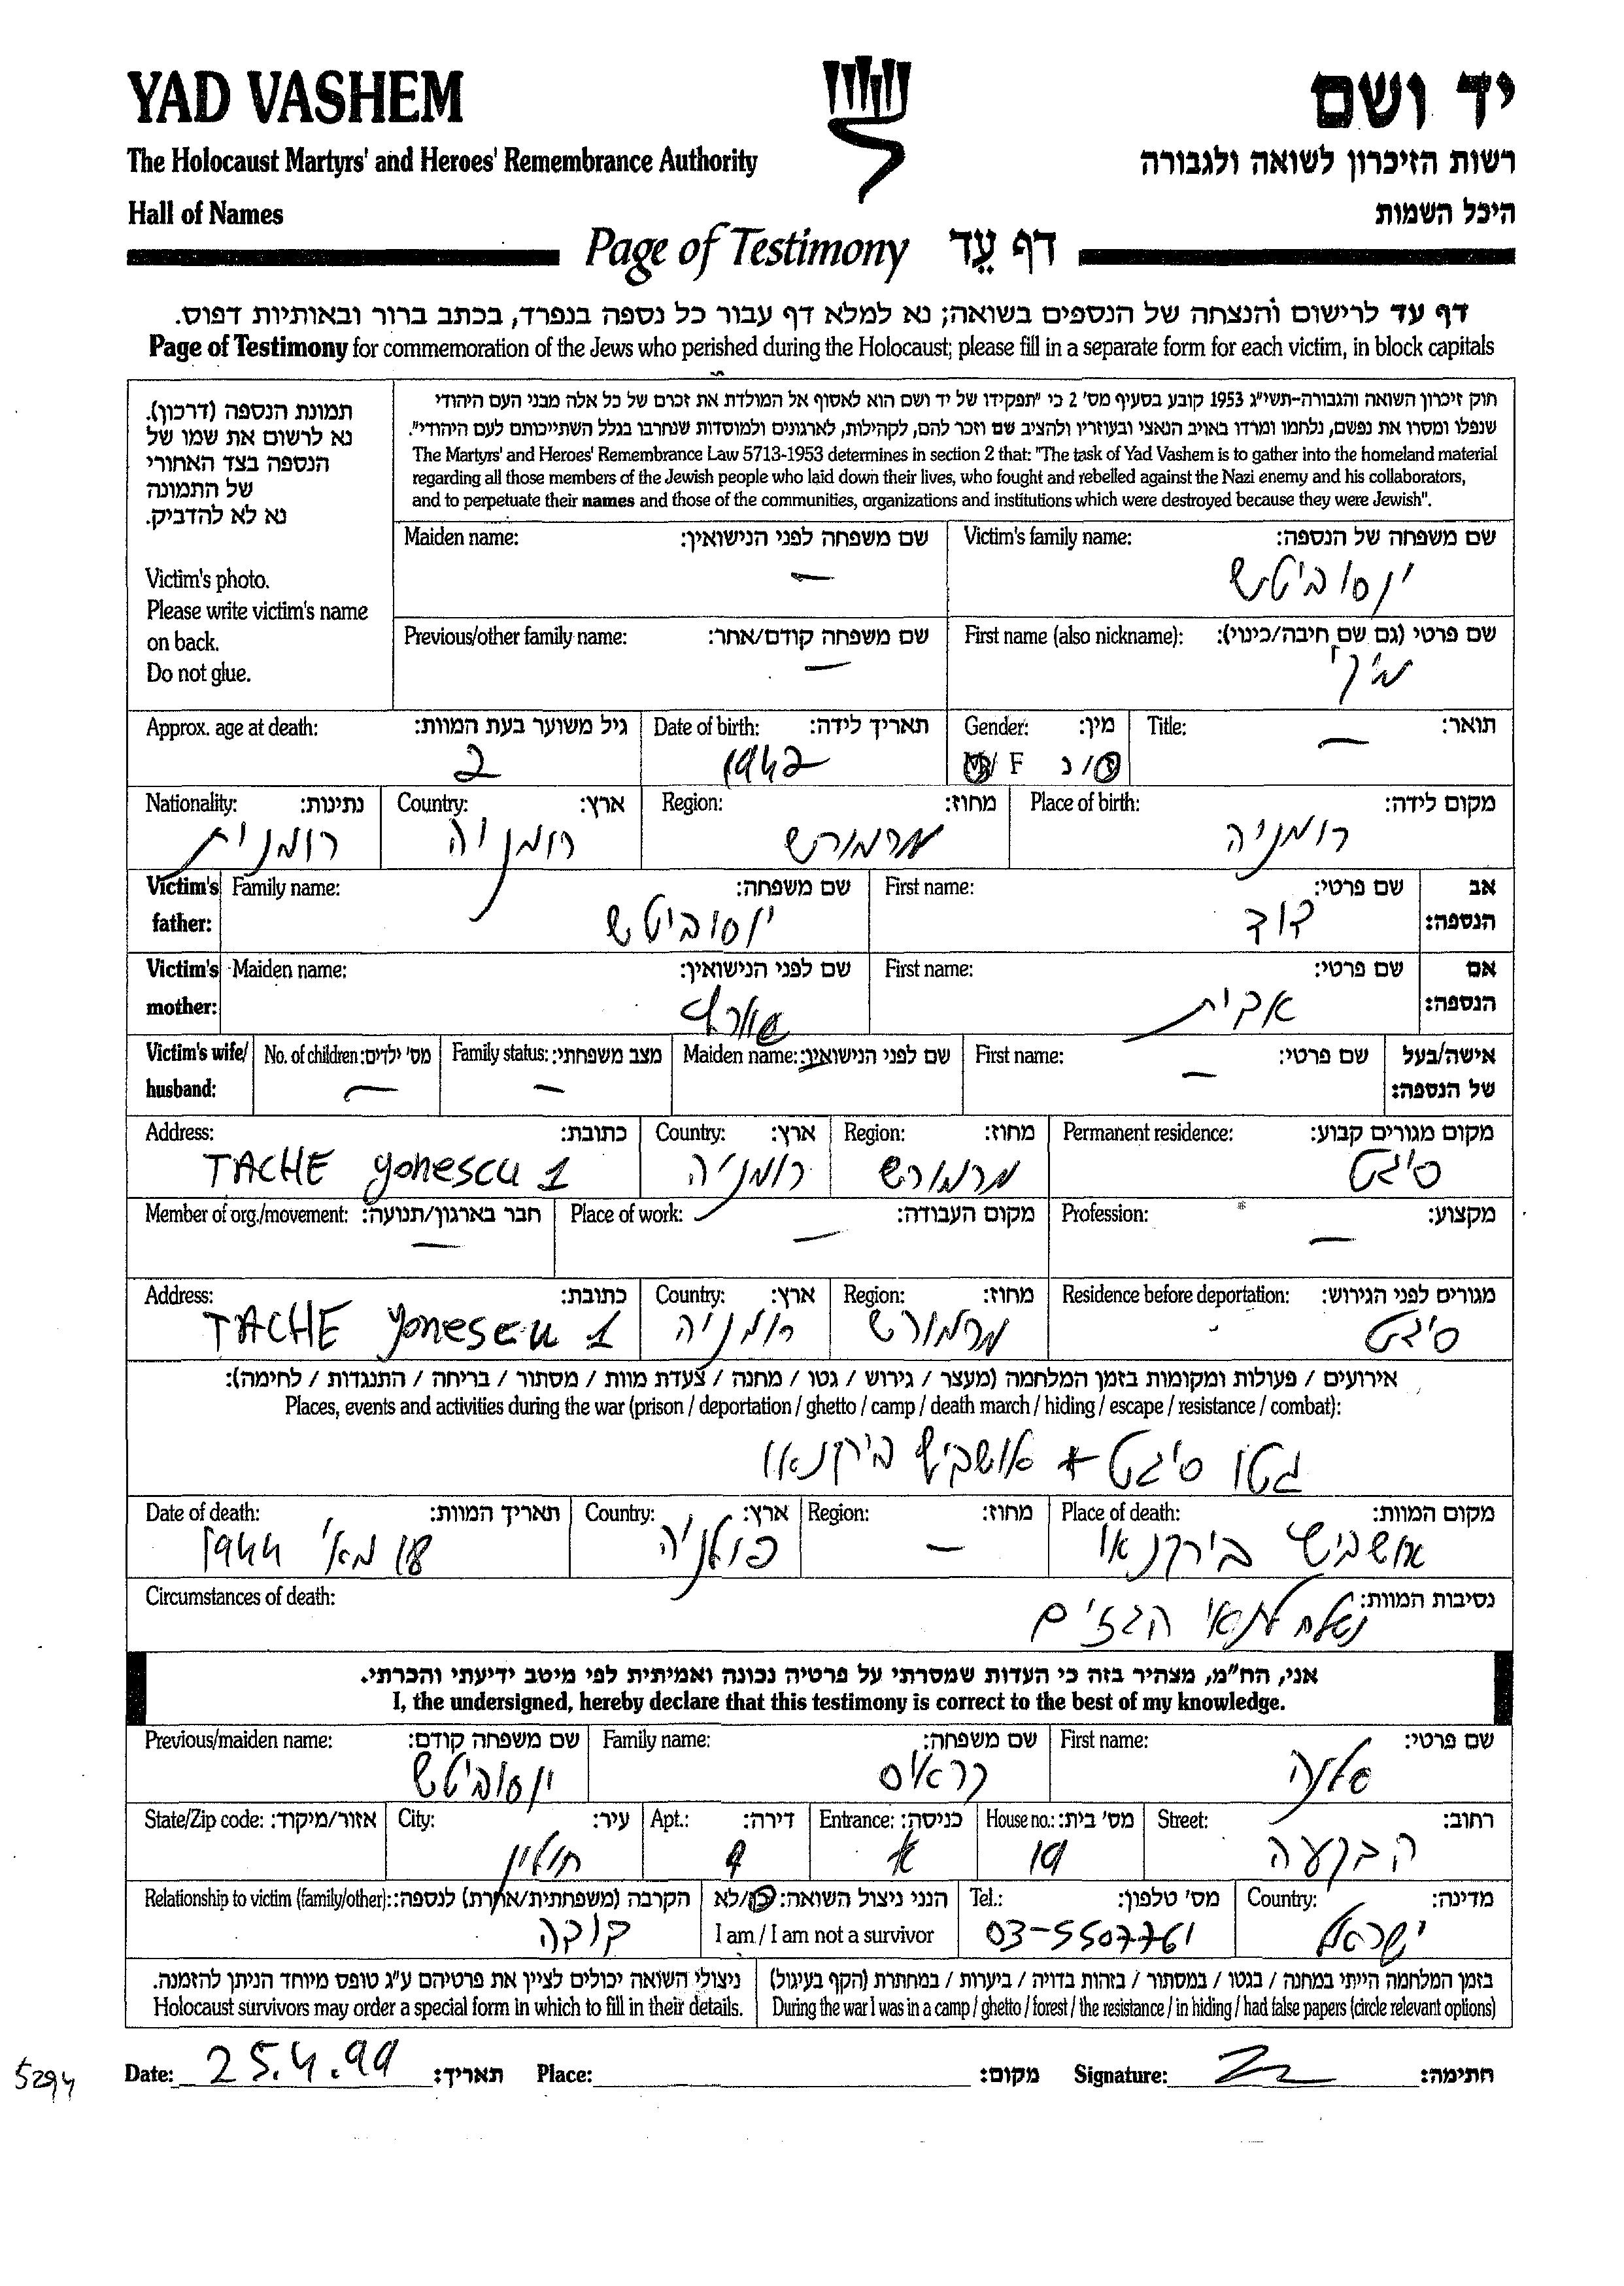 YAD VASHEM
יד ושם
The Holocaust Martyrs' and Heroes' Remembrance Authority
רשות הזיכרון לשואה ולגבורה
Hall of Names
היכל השמות
Page of Testimony דף עֵד
דף עד לרישום והנצחה של הנספים בשואה; נא למלא דף עבור כל נספה בנפרד, בכתב ברור ובאותיות דפוס.
Page of Testimony for commemoration of the Jews who perished during the Holocaust; please fill in a separate form for each victim, in block capitals
תמונת הנספה (דרכון).
נא לרשום את שמו של
הנספה בצד האחורי
של התמונה
נא לא להדביק.
Victim's photo.
Please write victim's name
on back.
Do not glue.
חוק זיכרון השואה והגבורה-תשי״ג 1953 קובע בסעיף מס' 2 כי "תפקידו של יד ושם הוא לאסוף אל המולדת את זכרם של כל אלה מבני העם היהודי
שנפלו ומסרו את נפשם, נלחמו ומרדו באויב הנאצי ובעוזריו ולהציב שם וזכר להם, לקהילות, לארגונים ולמוסדות שנחרבו בגלל השתייכותם לעם היהודי".
The Martyrs' and Heroes' Remembrance Law 5713-1953 determines in section 2 that: "The task of Yad Vashem is to gather into the homeland material
regarding all those members of the Jewish people who laid down their lives, who fought and rebelled against the Nazi enemy and his collaborators,
and to perpetuate their names and those of the communities, organizations and institutions which were destroyed because they were Jewish".
Victim's family name: שם משפחה של הנספה:
Maiden name: שם משפחה לפני הנישואין:
ינסוביטש
—
First name (also nickname): שם פרטי (גם שם חיבה/כינוי):
Previous/other family name: שם משפחה קודם/אחר:
—
Title: תואר:
Gender: מין:
Date of birth: תאריך לידה:
Approx. age at death: גיל משוער בעת המוות:
—
M/ F ז/ נ
1942
2
Place of birth: מקום לידה:
Region: מחוז:
Country: ארץ:
Nationality: נתינות:
רומניה
מרמורש
רומניה
רומנית
אב הנספה: שם פרטי: First name:
שם משפחה: Family name: Victim's father:
דוד
ינסוביטש
אם הנספה: שם פרטי: First name:
שם לפני הנישואין: Maiden name: Victim's mother:
אבית
אישה/בעל של הנספה: שם פרטי: First name:
שם לפני הנישואין: Maiden name:
מצב משפחתי: Family status:
מס' ילדים: No. of children: Victim's wife/ husband:
— — —
Permanent residence: מקום מגורים קבוע:
Region: מחוז:
Country: ארץ:
Address: כתובת:
סיגט
מרמורש
רומניה
TACHE yonescu 1
Profession: מקצוע:
Place of work: מקום העבודה:
Member of org./movement: חבר בארגון/תנועה:
— — —
Residence before deportation: מגורים לפני הגירוש:
Region: מחוז:
Country: ארץ:
Address: כתובת:
סיגט
מרמורש
רומניה
TACHE yonescu 1
אירועים / פעולות ומקומות בזמן המלחמה (מעצר / גירוש / גטו / מחנה / צעדת מוות / מסתור / בריחה / התנגדות / לחימה):
Places, events and activities during the war (prison / deportation / ghetto / camp / death march / hiding / escape / resistance / combat):
גטו סיגט + אושביץ בירקנאו
Place of death: מקום המוות:
Region: מחוז:
Country: ארץ:
Date of death: תאריך המוות:
אושביץ בירקנאו
—
פולניה
18 מאי 1944
Circumstances of death: נסיבות המוות:
נשלח לתאי הגזים
אני, הח״מ, מצהיר בזה כי העדות שמסרתי על פרטיה נכונה ואמיתית לפי מיטב ידיעתי והכרתי.
I, the undersigned, hereby declare that this testimony is correct to the best of my knowledge.
First name: שם פרטי:
Family name: שם משפחה:
Previous/maiden name: שם משפחה קודם:
קראוס
ינסוביטש
Street: רחוב:
House no.: מס' בית:
Entrance: כניסה:
Apt.: דירה:
City: עיר:
State/Zip code: אזור/מיקוד:
הבקעה
19
א
9
חולון
Country: מדינה:
Tel.: מס' טלפון:
הנני ניצול השואה: כן/לא
I am / I am not a survivor
Relationship to victim (family/other): הקרבה (משפחתית/אחרת) לנספה:
ישראל
03-5507761
קרבה
בזמן המלחמה הייתי במחנה / בגטו / במסתור / בזהות בדויה / ביערות / במחתרת (הקף בעיגול)
During the war I was in a camp / ghetto / forest / the resistance / in hiding / had false papers (circle relevant options)
ניצולי השואה יכולים לציין את פרטיהם ע״ג טופס מיוחד הניתן להזמנה.
Holocaust survivors may order a special form in which to fill in their details.
Date: 25.4.99 תאריך: Place: מקום: Signature: חתימה:
5294